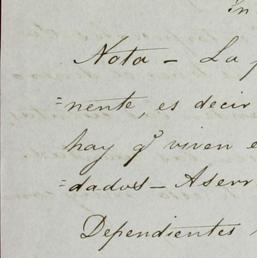 In
Nota - La
=nente, es decir
hay q.e viven e
=dados - Aserr
Dependientes